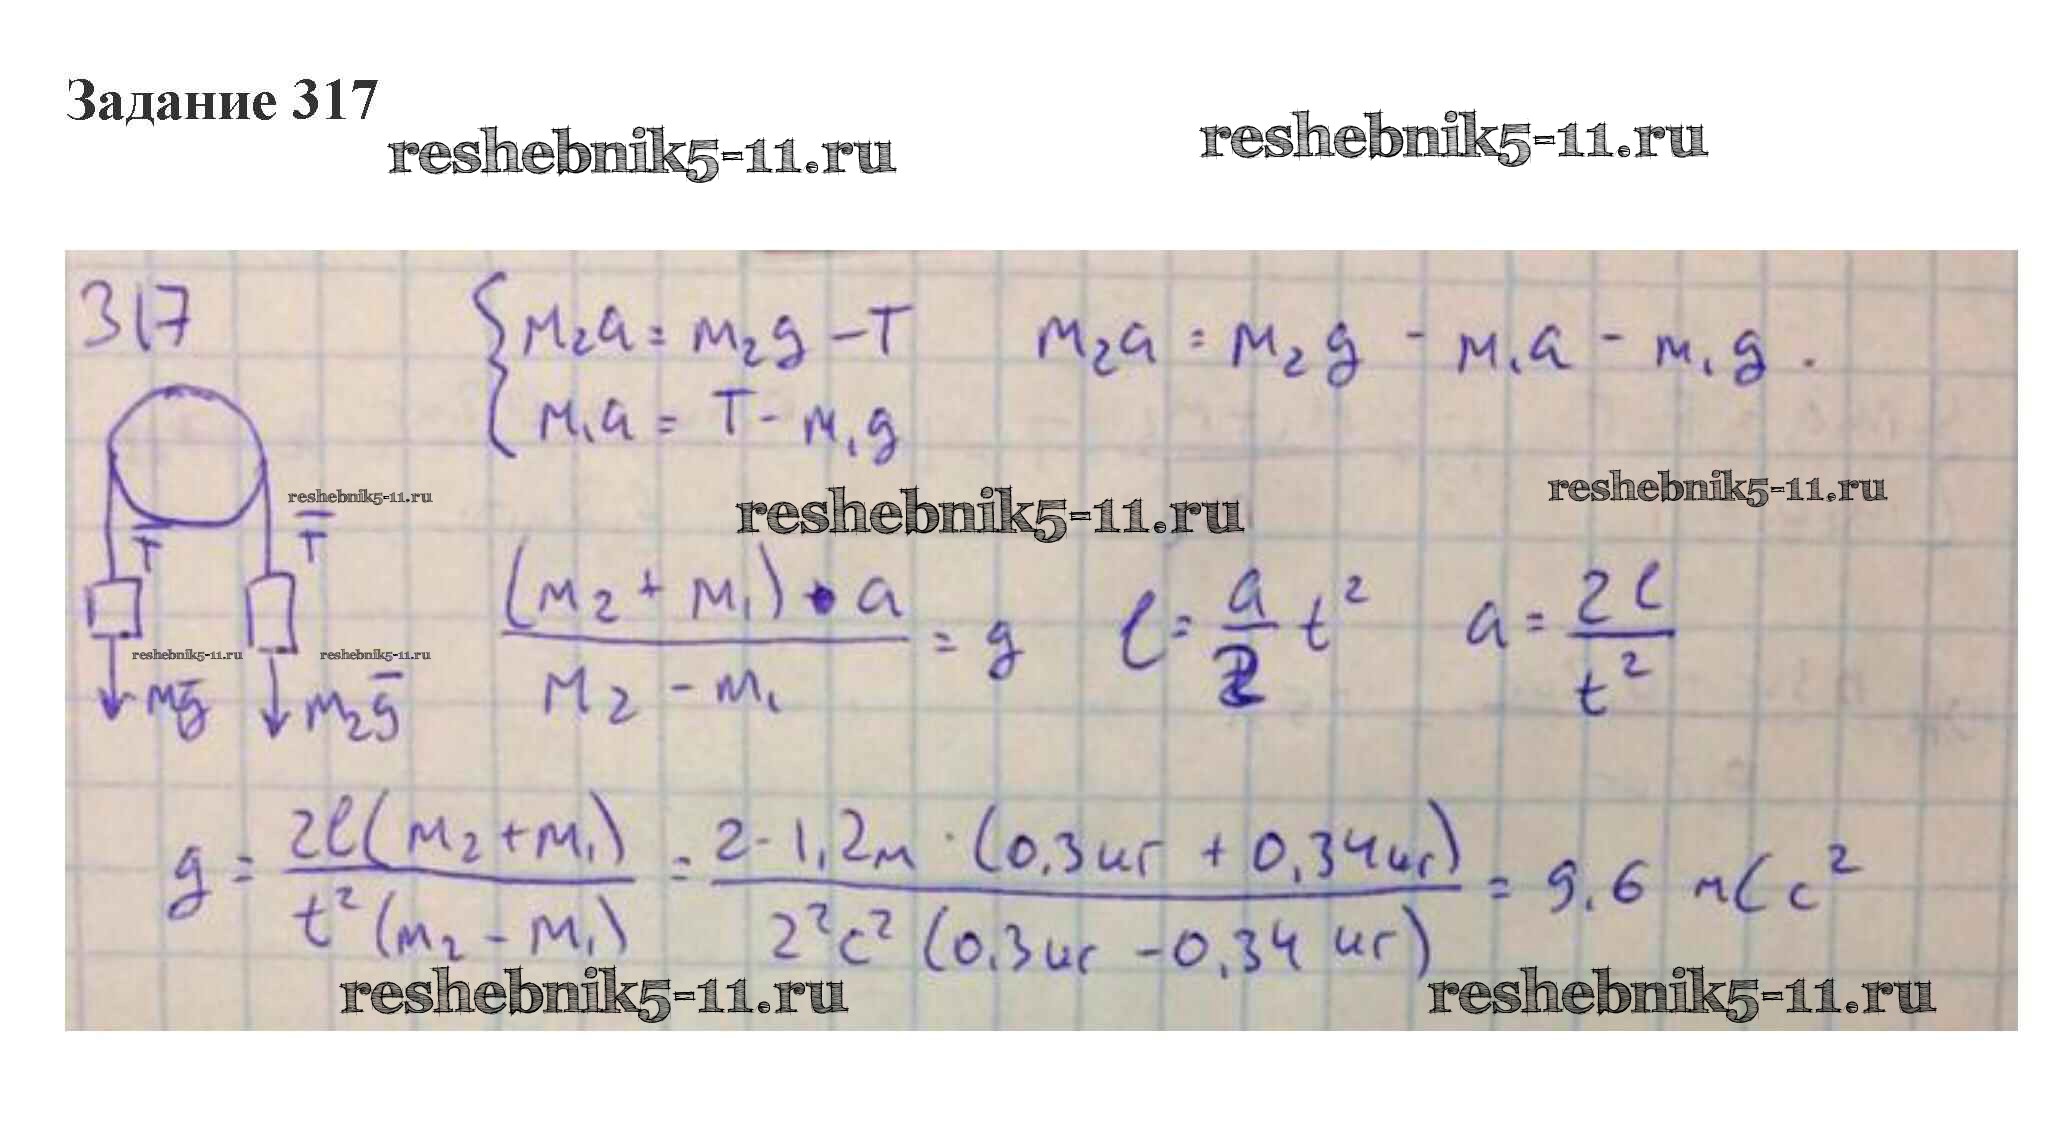 Задание 317
reshebnik5-11.ru
reshebnik5-11.ru
317
m₂a = m₂g − T
m₁a = T − m₁g
m₂a = m₂g − m₁a − m₁g.
reshebnik5-11.ru
T
T
reshebnik5-11.ru
reshebnik5-11.ru
(m₂ + m₁) • a / m₂ − m₁ = g
l = a/2 t²
a = 2l/t²
reshebnik5-11.ru
reshebnik5-11.ru
mg
m₂g
g = 2l(m₂ + m₁) / t²(m₂ − m₁) = 2 · 1,2м · (0,3кг + 0,34кг) / 2²с²(0,3кг − 0,34кг) = 9,6 м/с²
reshebnik5-11.ru
reshebnik5-11.ru